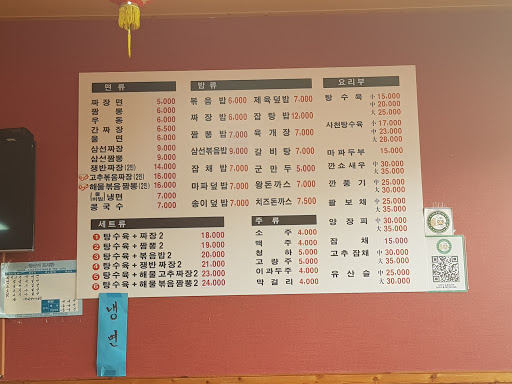 면 류
짜 장 면 5.000
짬 뽕 6.000
우 동 6.000
간 짜 장 6.500
울 면 6.500
삼선짜장 9.000
삼선짬뽕 9.000
쟁반짜장(2인) 14.000
고추볶음짜장(2인) 16.000
해물볶음짬뽕(2인) 16.000
냉면 7.000
콩 국 수 7.000
밥 류
볶 음 밥 6.000
짜 장 밥 6.000
짬 뽕 밥 7.000
삼선볶음밥 9.000
잡 채 밥 7.000
마파덮밥 7.000
송이덮밥 7.000
제육덮밥 7.000
잡 탕 밥 12.000
육 개 장 7.000
갈 비 탕 7.000
군 만 두 5.000
왕돈까스 7.000
치즈돈까스 7.500
요리부
탕 수 육 小 15.000
中 20.000
大 25.000
사천탕수육 小 17.000
中 23.000
大 28.000
마 파 두 부 15.000
깐 쇼 새 우 中 30.000
大 35.000
깐 풍 기 中 25.000
大 30.000
팔 보 채 中 25.000
大 30.000
양 장 피 中 30.000
大 35.000
잡 채 15.000
고 추 잡 채 中 30.000
大 35.000
유 산 슬 中 25.000
大 30.000
세트류
1 탕수육 + 짜장 2 18.000
2 탕수육 + 짬뽕 2 19.000
3 탕수육 + 볶음밥 2 20.000
4 탕수육 + 쟁반짜장 2 21.000
5 탕수육 + 해물고추짜장 2 23.000
6 탕수육 + 해물볶음짬뽕 2 24.000
주 류
소 주 4.000
맥 주 4.000
청 하 5.000
고 량 주 5.000
이과두주 4.000
막 걸 리 4.000
냉면